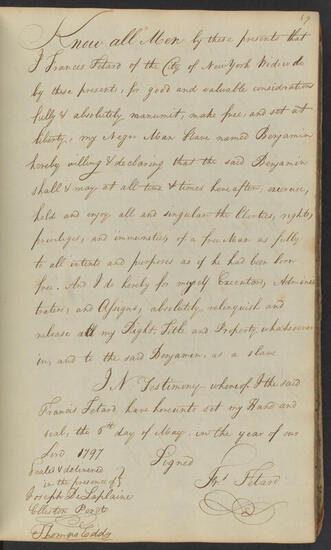 89
Know all Men by these presents that
I Frances Tetard of the City of New York Widow do
by these presents, for good and valuable considerations
fully & absolutely manumit, make free, and set at
liberty, my Negro Man Slave named Benjamin
hereby willing & declaring that the said Benjamin
shall & may at all time & times hereafter, exercise,
hold and enjoy all and singular the liberties, rights,
privileges, and immunities, of a free Man as fully
to all intents and purposes as if he had been born
free. And I do hereby for myself Executors, Adminis
trators, and Assigns, absolutely relinquish and
release all my Right, Title and Property whatsoever
in, and to the said Benjamen, as a slave
IN Testimony whereof I the said
Francis Tetard have hereunto set my Hand and
seal, the 8th day of May in the year of our
Lord 1797 Signed
Sealed & delivered
in the presence of Frs Tetard
Joseph De Laplaine
Elliston Perot
Thomas Eddy